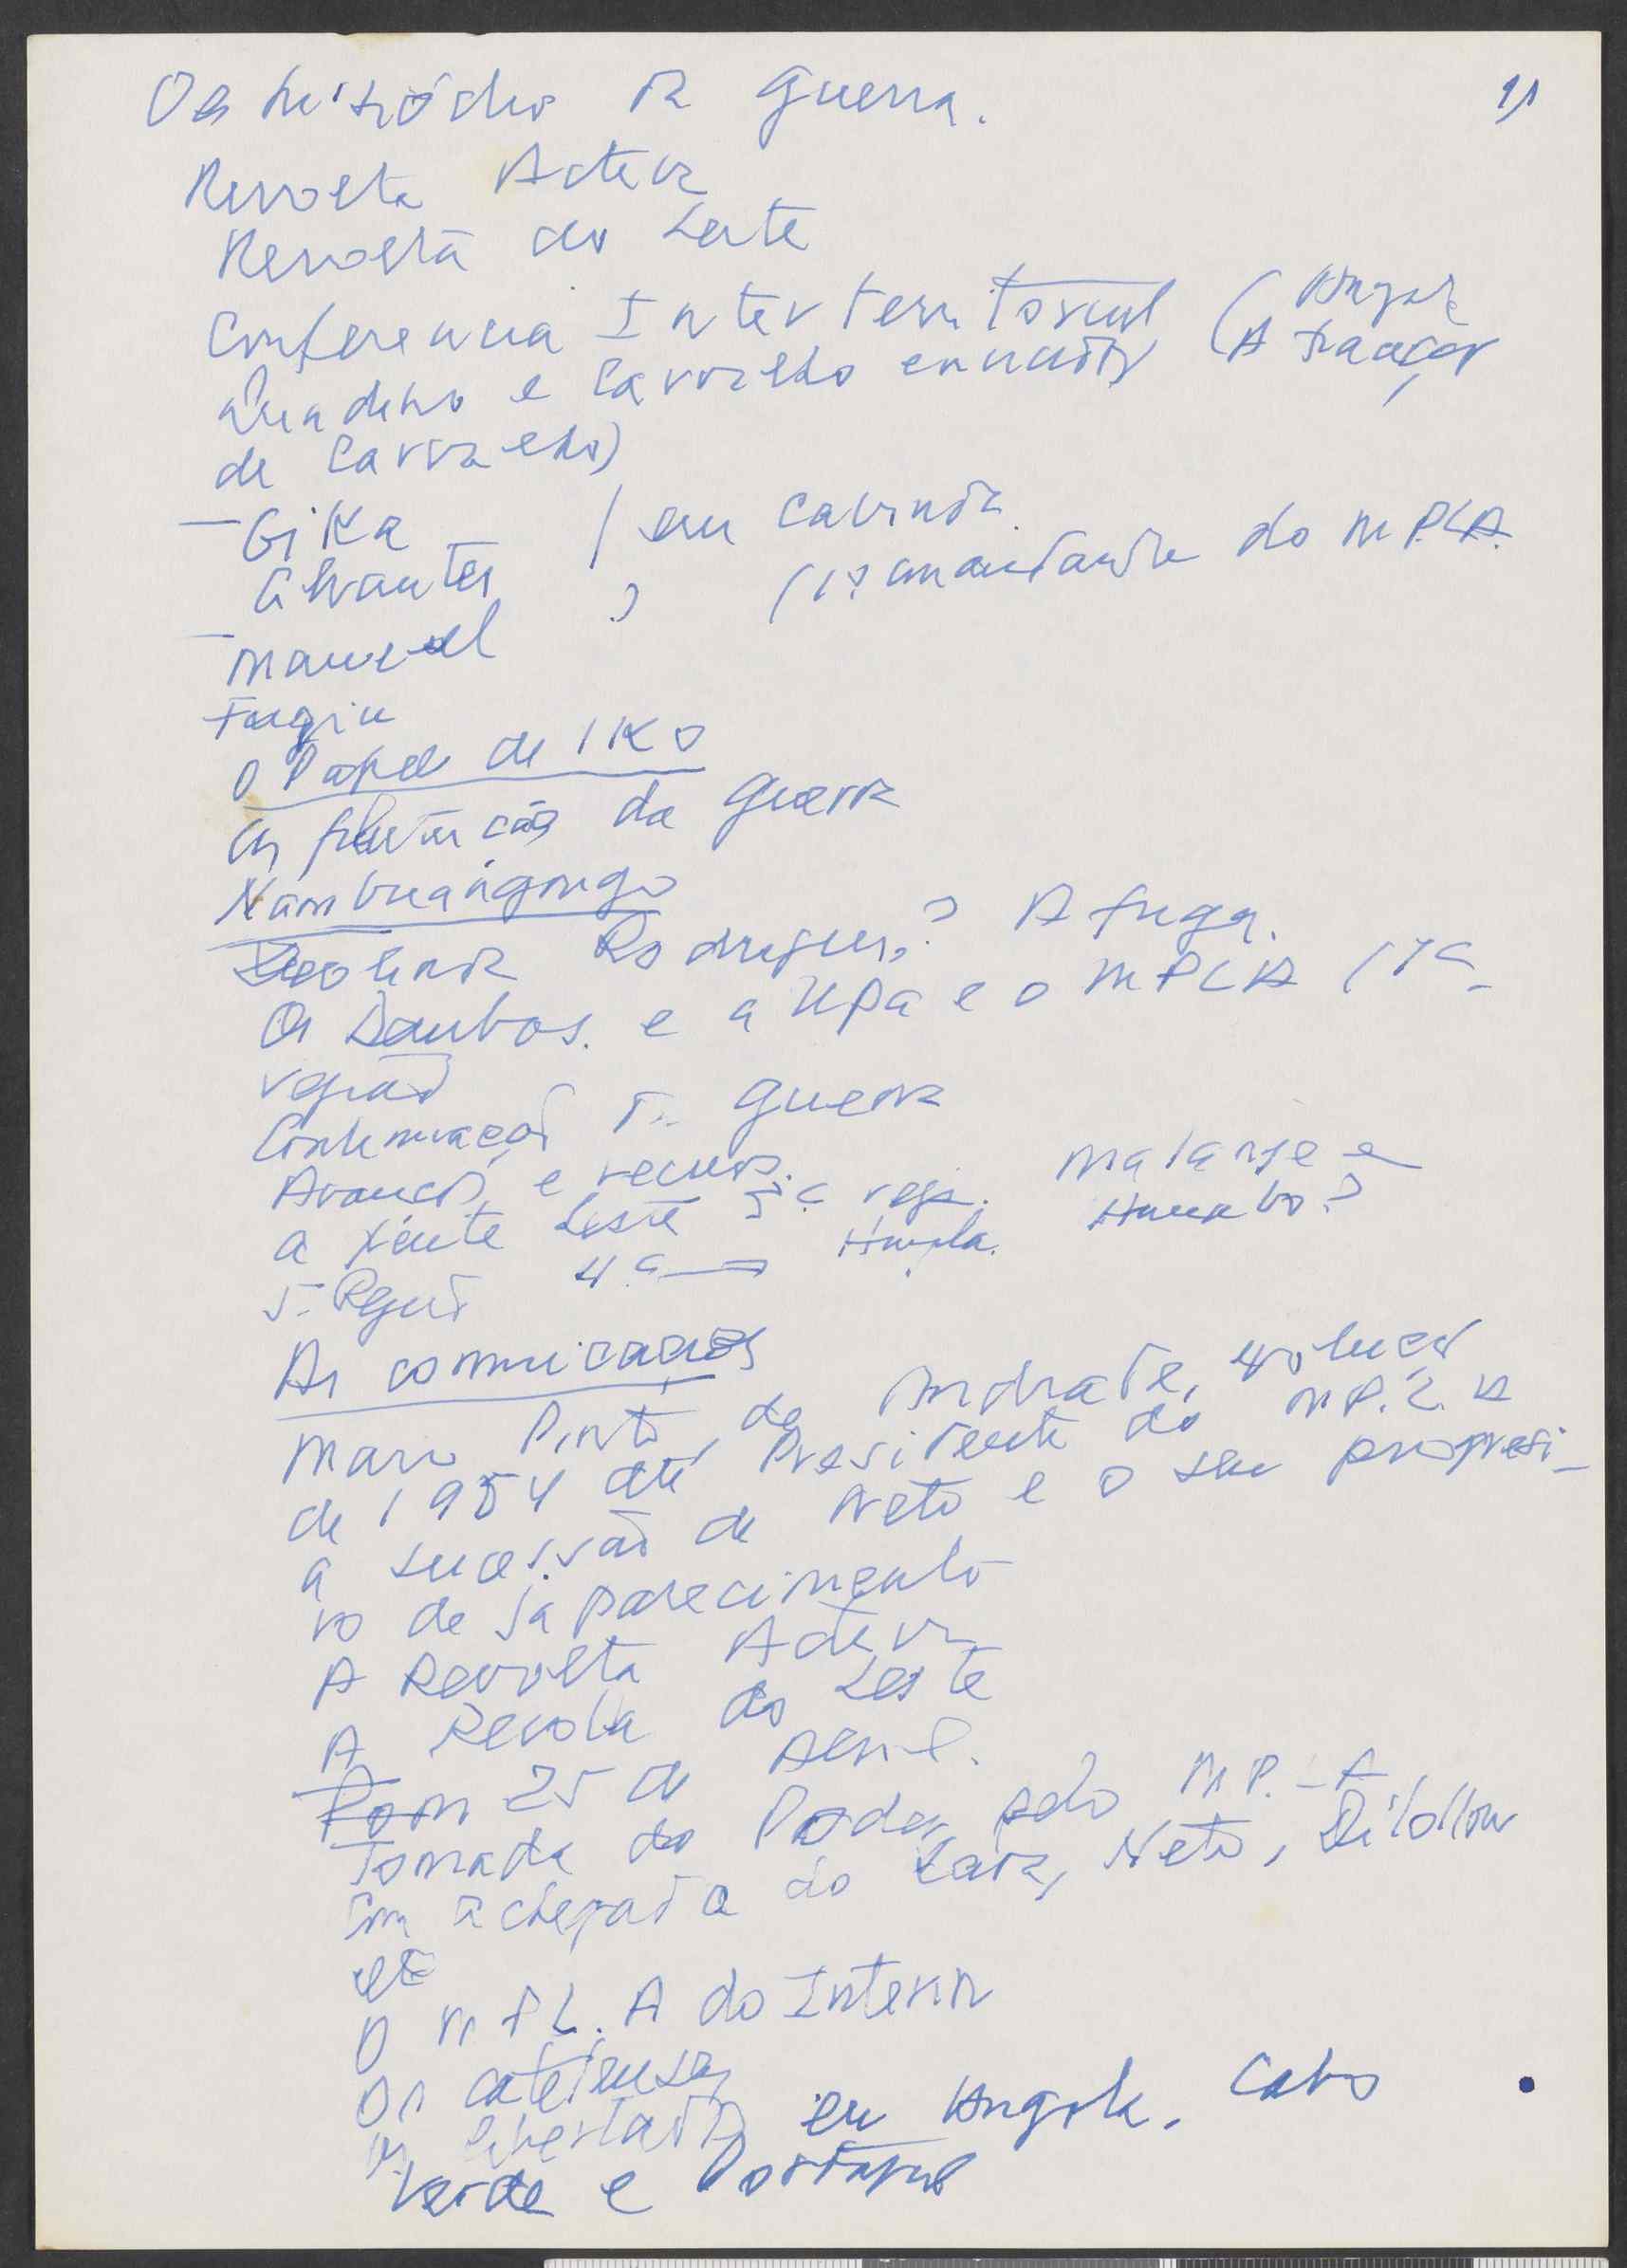 Os episódios da Guerra.
Revolta Activa
Revolta do Leste
Conferencia Inter territorial (
e Carvalho (A traição
de Carvalho)
— Gika / em Cabinda
? (1º comandante do M.P.L.A.
— Manuel
Fugiu
O Papel de IKO
da Guerra
Nambuangongo
Deolinda Rodrigues? A fuga.
Os Dembos. e a UPA e o MPLA (1ª
região
Continuação da Guerra
Avanços e recuos. Malanje e
a frente Leste 3ª reg. Huambo?
5ª Região 4ª — Huíla.
As comunicações
Mario Pinto de Andrade,
de 1954 até Presidente do M.P.L.A
a sucessão de Neto e o seu progressi-
vo desaparecimento
A Revolta Activa
A Revolta do Leste
Com 25 de Abril.
Tomada do Poder pelo M.P.L.A
Com a chegada do Lara, Neto, Dilolwa
etc
O M.P.L.A do Interior
Os catetenses
Os libertados em Angola. Cabo
Verde e Portugal